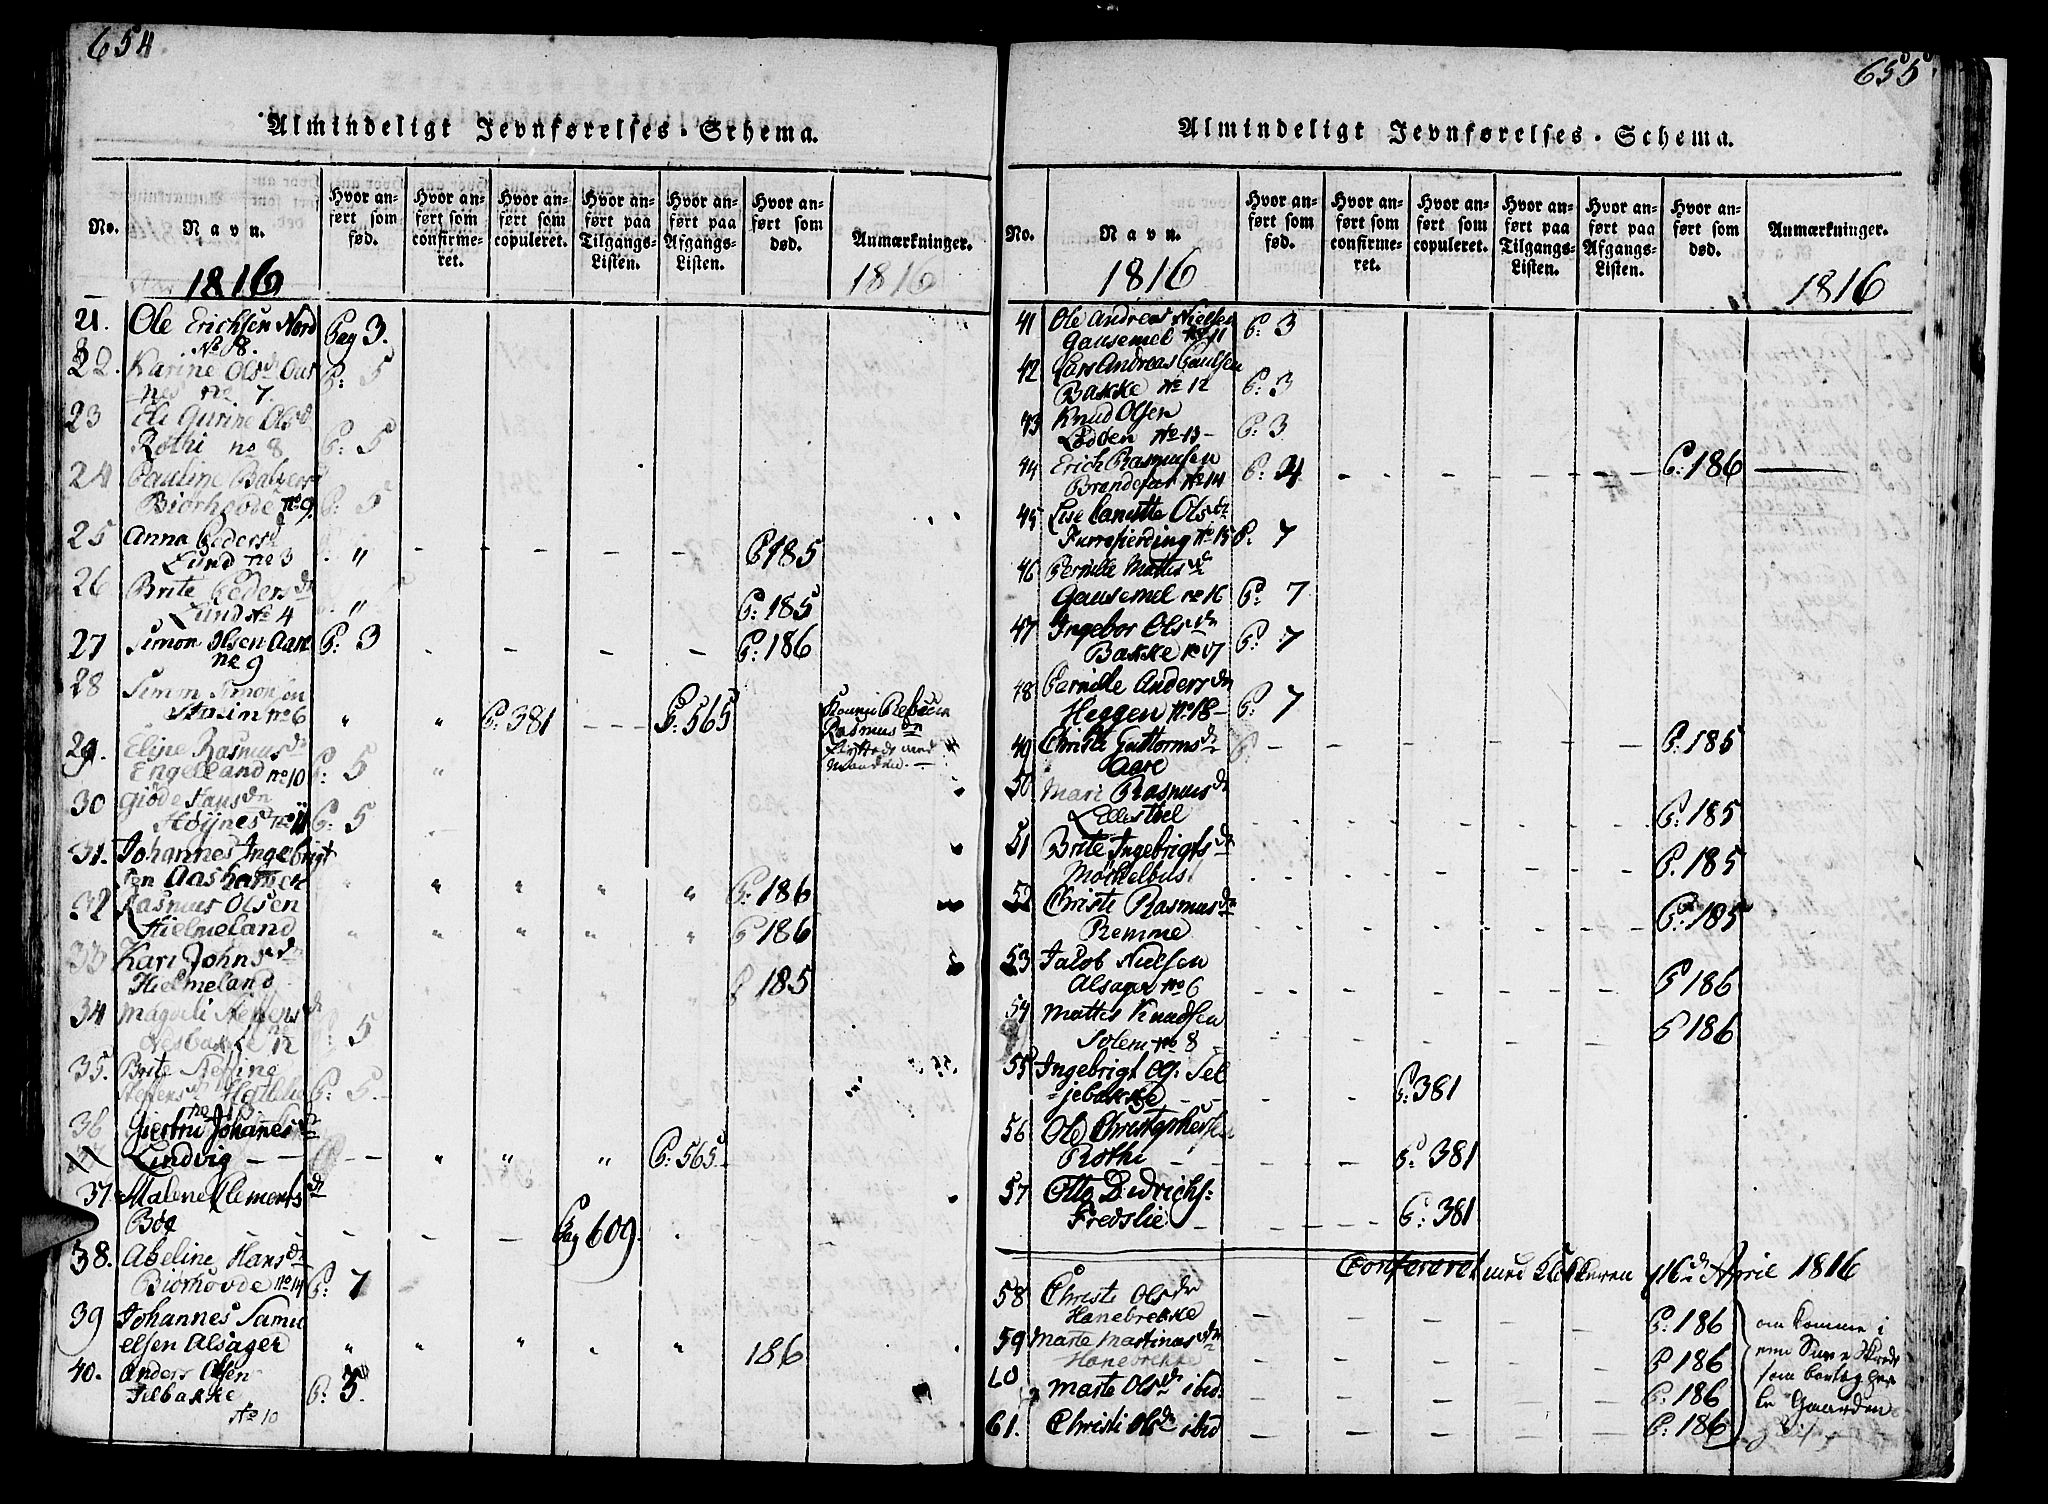 654.
Almindeligt Jevnførelses-Schema.
No.
Navn.
1816
Hvor an-
ført som
fød.
Hvor an-
ført som
confirme-
ret.
Hvor an-
ført som
copuleret.
Hvor an-
ført paa
Tilgangs-
Listen.
Hvor an-
ført paa
Afgangs-
Listen.
Hvor an-
ført som
død.
Anmærkninger.
1816
21. Ole Erichsen Nord Pag 3.
No 8.
22. Karine Olsd
nes no 7. P: 5
23 Gurine Olsd
Rothi no 8 P: 5
24 Pauline
Biørhovde no 9. P: 5
25 Anna Pedersd
Lund no 3 " - - - - P 185
26 Brite Pedersdr
Lund No 4 " P: 185
27 Simon Olsen Aare P: 3 - - - - P: 186
no 9
28 Simon Simonsen
no 6 " " P: 381 - - P: 565
Rasmusdn
29. Eline Rasmusdn
Engeland no 10 P: 5 "
30 Giøde Hansdn
Høijnes no 11 P: 5
31. Johannes Ingebrigt
sen " " " " P: 186
32 Rasmus Olsen
Hielmeland " " " " " P 186
33 Kari Johnsdn
Hielmeland P 185
34 Magdeli Steffensdn
no 12 P: 5
35. Brite Steffine
Steffensdn P: 5.
no 13
36 Giertru Johannesdn
Lindvig - - - - " " " P: 565.
37 Malene Klemensdn
Bøe - - - Pag 609.
38. Abeline Hansdn
Biørhovde no 14 P: 7
39 Johannes Samu
elsen Alsager " " " " " 186
40. Anders Olsen
Selbakke P: 3.
No 10
655
Almindeligt Jevnførelses-Schema.
No.
Navn.
1816
Hvor an-
ført som
fød.
Hvor an-
ført som
confirme-
ret.
Hvor an-
ført som
copuleret.
Hvor an-
ført paa
Tilgangs-
Listen.
Hvor an-
ført paa
Afgangs-
Listen.
Hvor an-
ført som
død.
Anmærkninger.
1816
41 Ole Andreas Nielsen P: 3
Gausemel No 11
42 Lars Andreas Paulsen
Bakke No 12 P: 3
43 Knud Olsen P: 3
Lødden No 13 -
44 Erich Rasmusen P: 4 - - - - - P: 186
No 14
45 Lise Canutte Olsdr
Furrefierding No 15 P. 7
46 Pernille Mattisdr
Gausemel no 16 P: 7
47 Ingebor Olsdn
Bakke no 17 P: 7
48 Pernille Andersdn
Heggen No 18 - P: 7
49 Christi Guttormsdr P: - - - - - P: 185
Aare
50 Mari Rasmusdn
- - - - - - P: 185
51 Brite Ingebrigtsdn
- - - - - P. 185
52 Christi Rasmusdn
Remme - - - - - - P: 185
53 Jacob Nielsen
Alsager no 6 - - - - - P 186
54 Mattis Knudsen
Solem no 8 - - - - - P 186
55 Ingebrigt Og. Sel
jebakke - - - - P: 381
56 Ole Christophersen
Rothi - - - - P: 381
57 Otto Didrichs:
Fredslie - - - - P: 381
Confereret med Klokkeren 16d April 1816
58 Christi Olsdn
Hanebrekke - - - - - P: 186
59 Marte Martinusdn
Hanebrekke - - - - - P 186
60 Marte Olsdn ibid: - - - - - P: 186
61. Christi Olsdn ibid - - - - - P: 186
om komme i
en Snee Skred
som
Gaarden